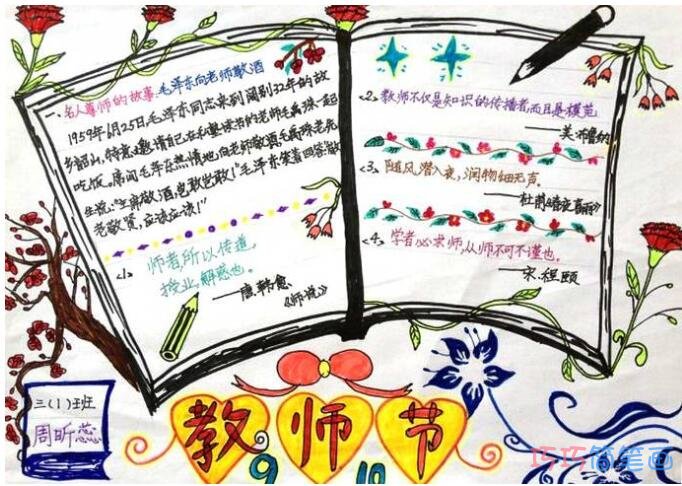 一、名人尊师的故事:毛泽东向老师敬酒
1959年6月25日,毛泽东同志来到阔别32年的故
乡韶山,特意邀请自己在私塾读书的老师毛禹珠一起
吃饭。席间毛泽东热情地向老师敬酒,毛禹珠老先
生说:"主席敬酒,岂敢岂敢!"毛泽东笑着回答:"敬
老敬贤,应该应该!"
<1>
师者,所以传道,
授业,解惑也。
——唐·韩愈
《师说》
<2>、教师不仅是知识的传播者,而且是模范
——美·布鲁纳
<3>、随风潜入夜,润物细无声。
——杜甫《春夜喜雨》
<4>、学者必求师,从师不可不谨也。
——宋·程颐
三(1)班
周昕蕊
教师节
9 10
巧巧简笔画